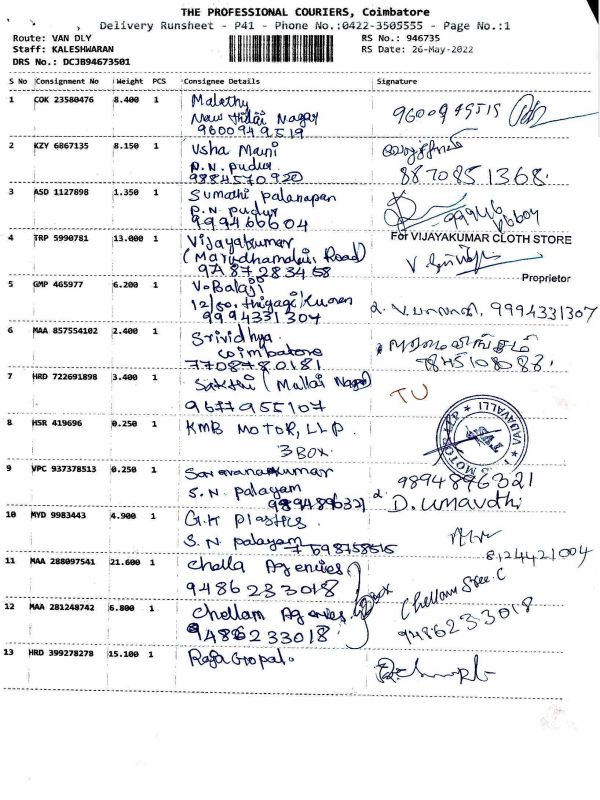 THE PROFESSIONAL COURIERS, Coimbatore
Delivery Runsheet - P41 - Phone No.:0422-3505555 - Page No.:1
Route: VAN DLY RS No.: 946735
Staff: KALESHWARAN RS Date: 26-May-2022
DRS No.: DCJB94673501
S No Consignment No Weight PCS Consignee Details Signature
1 COK 23580476 8.400 1 Malathy
New thilai Nagar 9600949519
9600949519
2 KZY 6867135 8.150 1 Usha Mani
P.N. Pudur
9884570920 8870851368.
3 ASD 1127898 1.350 1 Sumathi palanapan
P.N. Pudur
999466604
4 TRP 5990781 13.000 1 Vijayakumar For VIJAYAKUMAR CLOTH STORE
(Marudhamalai Road)
9787283458 Proprietor
5 GMP 465977 6.200 1 V.Balaji
9994331307 9994331307
6 MAA 857554102 2.400 1 Srividhya
Coimbatore
7708780181
7 HRD 722691898 3.400 1 Sakthi (Mallai Nagar) TU
9677955107
8 HSR 419696 0.250 1 KMB MOTOR, LLP.
3 BOX. VADAVALLI
9 VPC 937378513 0.250 1 Saravanakumar 9894896321
S.N. palayam D.Umavathi
9894896321
10 MYD 9983443 4.900 1 G.K Plastics.
S.N. palayam 7598758515 8124421004
11 MAA 288097541 21.600 1 Chella Agencies
9486233018 BOX
12 MAA 281248742 6.800 1 Chellam Agencies Chellam Sree. C
9486233018 9486233018
13 HRD 399278278 15.100 1 RajaGopal.